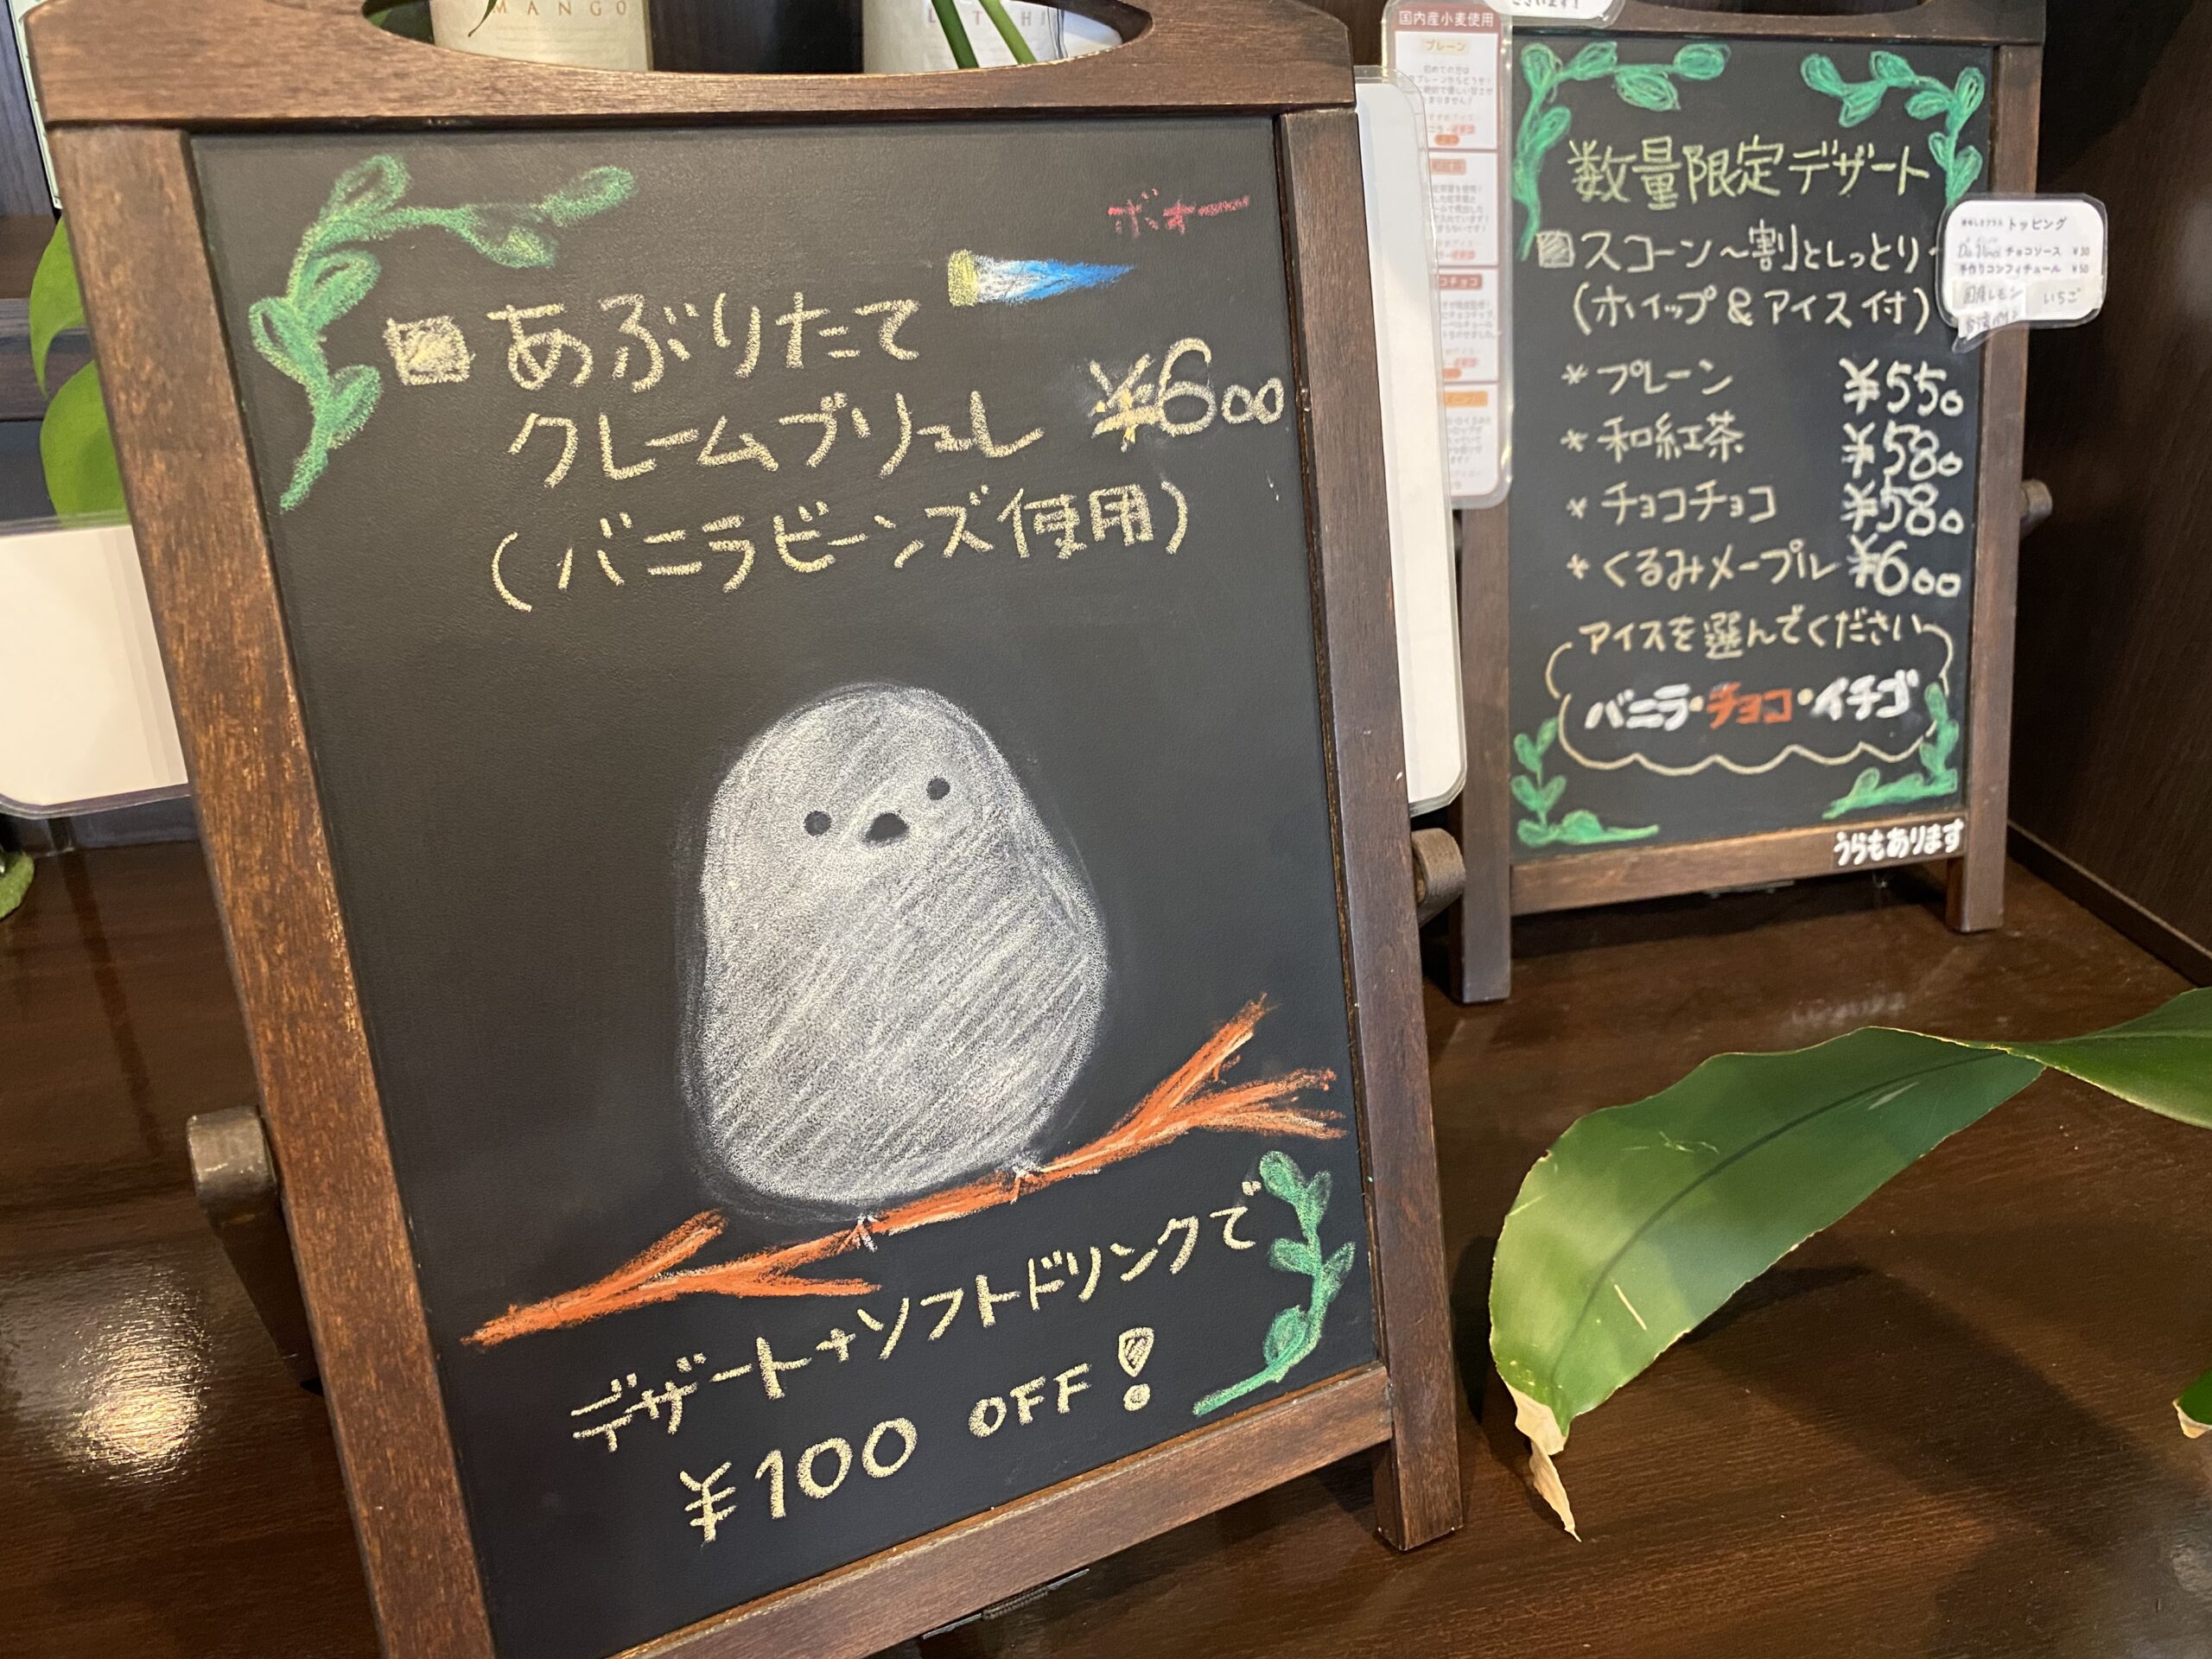 MANGO
ボォー
あぶりたて
クレームブリュレ ¥600
(バニラビーンズ使用)
デザート+ソフトドリンクで
¥100 OFF!
国内産小麦使用
プレーン
数量限定デザート
スコーン～割としっとり
(ホイップ&アイス付)
*プレーン ¥550
*和紅茶 ¥580
*チョコチョコ ¥580
*くるみメープル ¥600
アイスを選んでください
バニラ・チョコ・イチゴ
うらもあります
トッピング
チョコソース ¥30
手作りコンフィチュール ¥50
国産レモン いちご